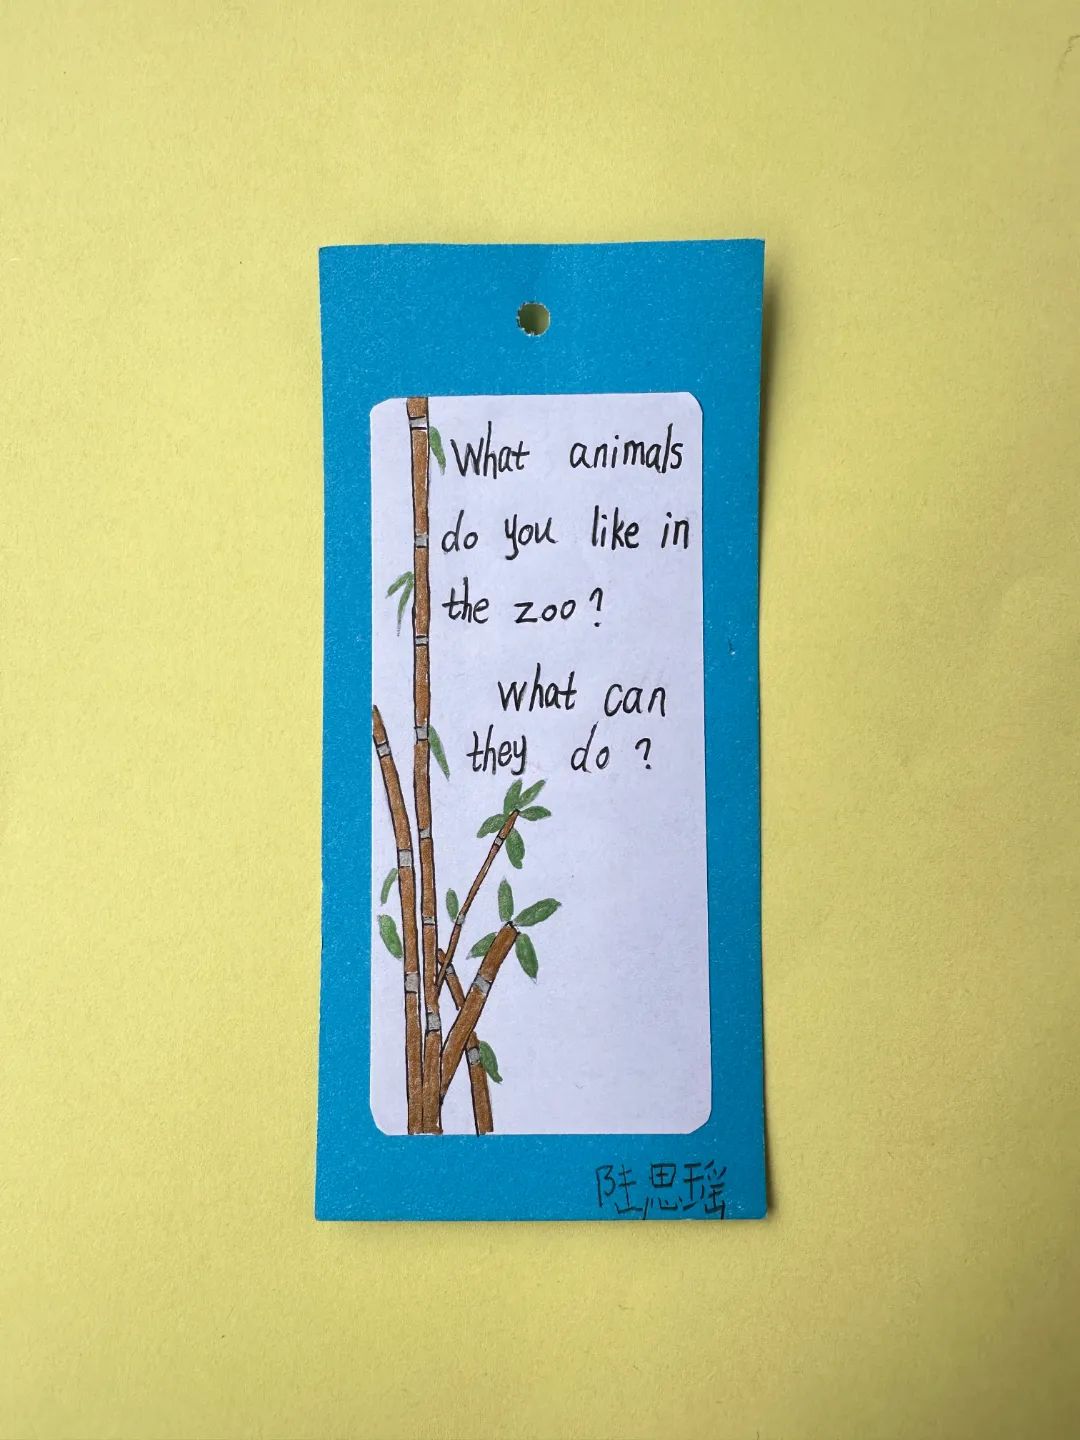 What animals
do you like in
the zoo?
what can
they do?
陆思瑶